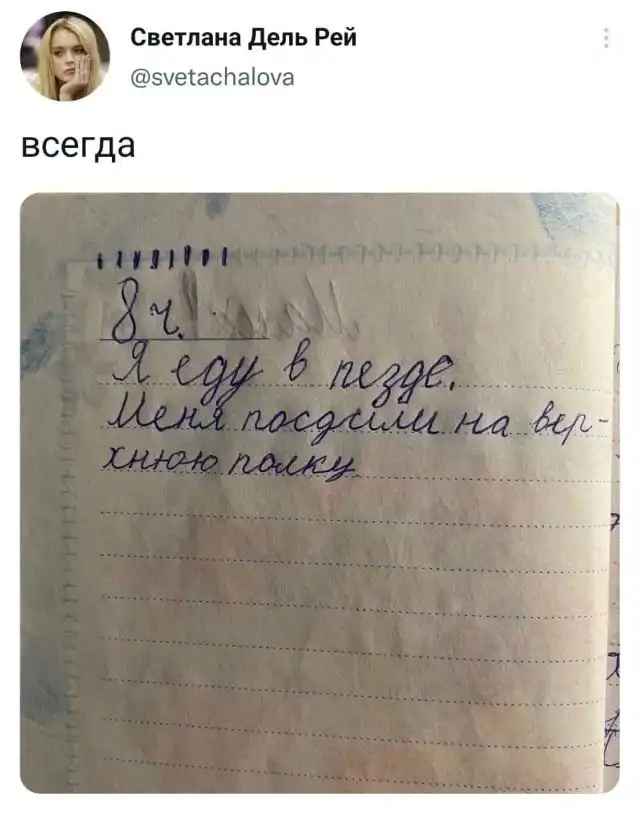 Светлана Дель Рей
@svetachalova
всегда
8 ч.
Я еду в пезде.
Меня посдили на вер-
хнюю полку